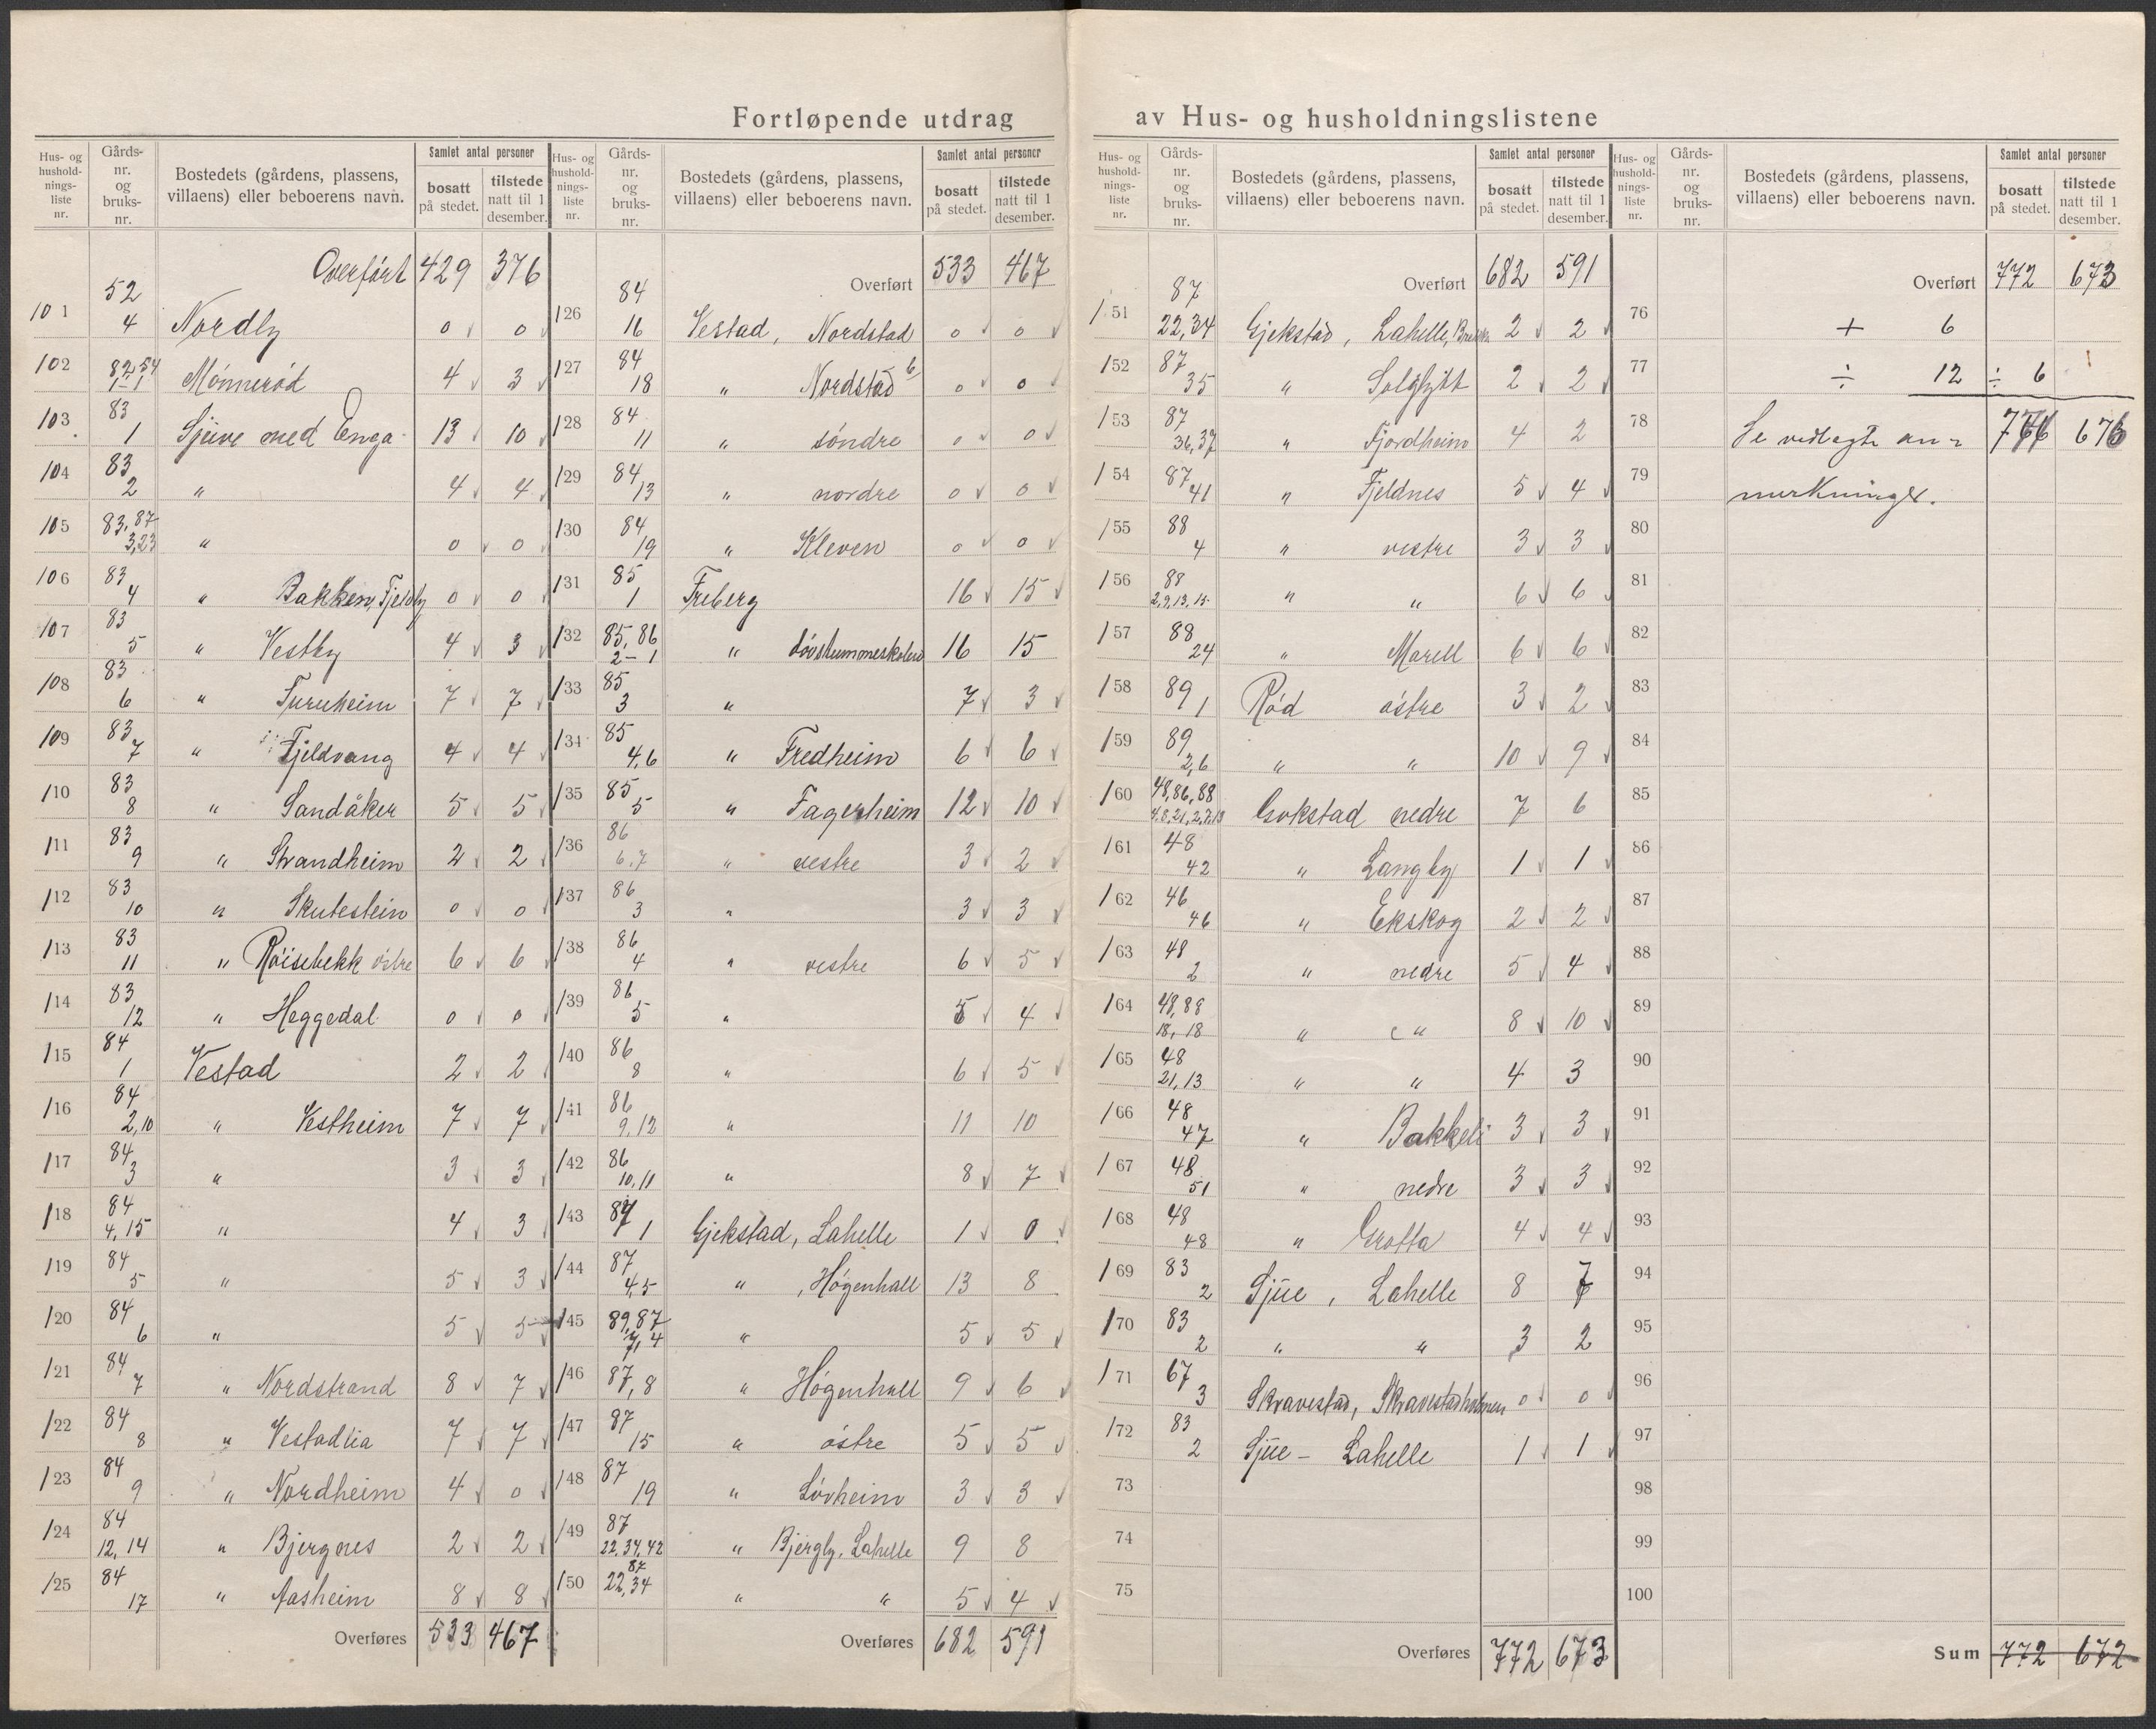 Fortløpende utdrag av Hus- og husholdningslistene
Hus- og husholdnings- liste nr. | Gårds- nr. og bruks- nr. | Bostedets (gårdens, plassens, villaens) eller beboerens navn. | Samlet antal personer | bosatt på stedet. | tilstede natt til 1 desember.
Overført 429 376
101 52 4 Nordly 0 0
102 82,54 1-1 Mønnerød 4 3
103 83 1 Sjuve med Enga 13 10
104 83 2 " 4 4
105 83,87 3,23 " 0 0
106 83 4 " Bakken, Fjeldly 0 0
107 83 5 " Vestby 4 3
108 83 6 " Furuheim 7 7
109 83 7 " Fjeldvang 4 4
110 83 8 " Sandåker 5 5
111 83 9 " Strandheim 2 2
112 83 10 " Skutestein 0 0
113 83 11 " Røisebekk østre 6 6
114 83 12 " Heggedal 0 0
115 84 1 Vestad 2 2
116 84 2,10 " Vestheim 7 7
117 84 3 " 3 3
118 84 4,15 " 4 3
119 84 5 " 5 3
120 84 6 " 5 5
121 84 7 " Nordstrand 8 7
122 84 8 " Vestadlia 7 7
123 84 9 " Nordheim 4 0
124 84 12,14 " Bjergnes 2 2
125 84 17 " Aasheim 8 8
Overføres 533 467
Hus- og husholdnings- liste nr. | Gårds- nr. og bruks- nr. | Bostedets (gårdens, plassens, villaens) eller beboerens navn. | Samlet antal personer | bosatt på stedet. | tilstede natt til 1 desember.
Overført 533 467
126 84 16 Vestad, Nordstad 0 0
127 84 18 " Nordstad b 0 0
128 84 11 " søndre 0 0
129 84 13 " nordre 0 0
130 84 19 " Kleven 0 0
131 85 1 Freberg 16 15
132 85,86 2-1 " døvstummeskolen 16 15
133 85 3 " 7 3
134 85 4,6 " Fredheim 6 6
135 85 5 " Fagerheim 12 10
136 86 6,7 " vestre 3 2
137 86 3 " 3 3
138 86 4 " vestre 6 5
139 86 5 " 5 4
140 86 8 " 6 5
141 86 9,12 " 11 10
142 86 10,11 " 8 7
143 87 1 Gjekstad, Lahelle 1 0
144 87 4,5 " , Høgenhall 13 8
145 89,87 7,4 " 5 5
146 87,8 " Høgenhall 9 6
147 87 15 " østre 5 5
148 87 19 " Løvheim 3 3
149 87 22,34,42 " Bjergly, Lahelle 9 8
150 87 22,34 " " 5 4
Overføres 682 591
Hus- og husholdnings- liste nr. | Gårds- nr. og bruks- nr. | Bostedets (gårdens, plassens, villaens) eller beboerens navn. | Samlet antal personer | bosatt på stedet. | tilstede natt til 1 desember.
Overført 682 591
151 87 22,34 Gjekstad, Lahelle, 2 2
152 87 35 " Solglytt 2 2
153 87 36,37 " Fjordheim 4 2
154 87 41 " Fjeldnes 5 4
155 88 4 " vestre 3 3
156 88 2,9,13,15 " " 6 6
157 88 24 " Morell 6 6
158 89 1 Rød østre 3 2
159 89 2,6 " " 10 9
160 48,86,88 Gokstad nedre 7 6
161 48 42 " Langby 1 1
162 46 46 " Ekskog 2 2
163 48 2 " nedre 5 4
164 48,88 18,18 " " 8 10
165 48 21,13 " " 4 3
166 48 47 " Bakkeli 3 3
167 48 51 " nedre 3 3
168 48 48 " Grotta 4 4
169 83 2 Sjüe, Lahelle 8 7
170 83 2 " " 3 2
171 67 3 Skravestad, Skravestadholmen 0 0
172 83 2 Sjüe - Lahelle 1 1
73
74
75
Overføres 772 673
Hus- og husholdnings- liste nr. | Gårds- nr. og bruks- nr. | Bostedets (gårdens, plassens, villaens) eller beboerens navn. | Samlet antal personer | bosatt på stedet. | tilstede natt til 1 desember.
Overført 772 673
76 + 6
77 ÷ 12 ÷ 6
78 Se vedlagte an- 766 676
79 merkninger.
80
81
82
83
84
85
86
87
88
89
90
91
92
93
94
95
96
97
98
99
100
Sum 772 672